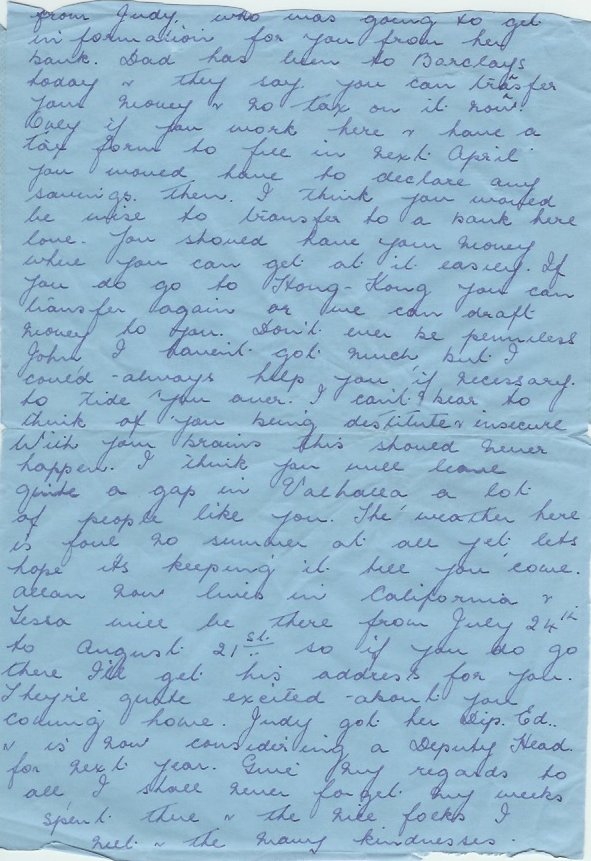 from Judy, who was going to get
information for you from her
bank. Dad has been to Barclays
today & they say you can transfer
your money & no tax on it now.
Only if you work here & have a
tax form to fill in next April
you would have to declare any
savings then. I think you would
be wise to transfer to a bank here
love. You should have your money
where you can get at it easily. If
you do go to Hong-Kong you can
transfer again or we can draft
money to you. Don't ever be penniless
John I haven't got much but I
could always help you if necessary.
to tide you over. I can't bear to
think of you being destitute & insecure
With your brains this should never
happen. I think you will leave
quite a gap in Valhalla a lot
of people like you. The weather here
is foul no summer at all yet lets
hope its keeping it till you come.
Allan now lives in California &
Tessa will be there from July 24th
to August 21st so if you do go
there I'll get his address for you.
They're quite excited about you
coming home. Judy got her Dip. Ed..
& is now considering a Deputy Head.
for next year. Give my regards to
all I shall never forget my weeks
spent there & the nice folks I
met & the many kindnesses.